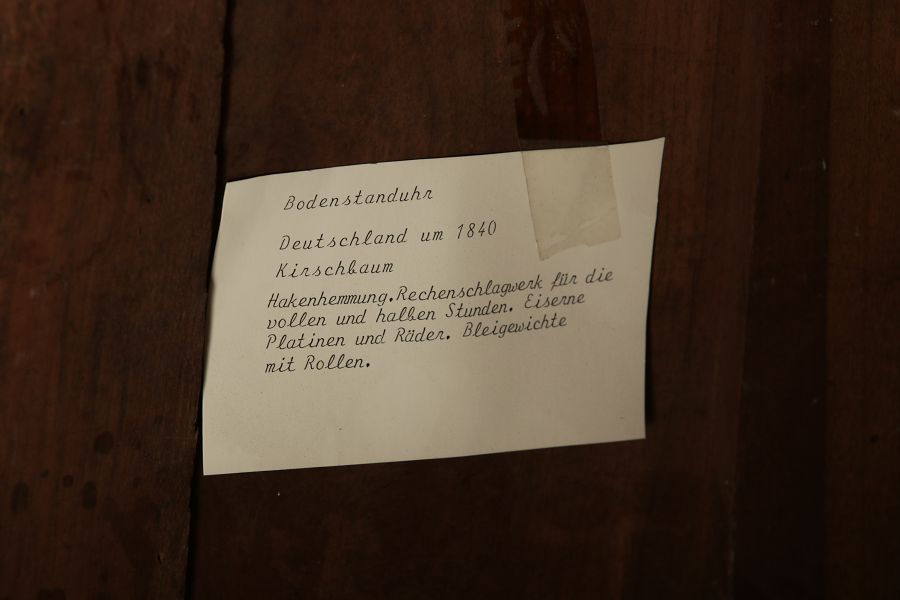 Bodenstanduhr
Deutschland um 1840
Kirschbaum
Hakenhemmung.Rechenschlagwerk für die
vollen und halben Stunden. Eiserne
Platinen und Räder. Bleigewichte
mit Rollen.